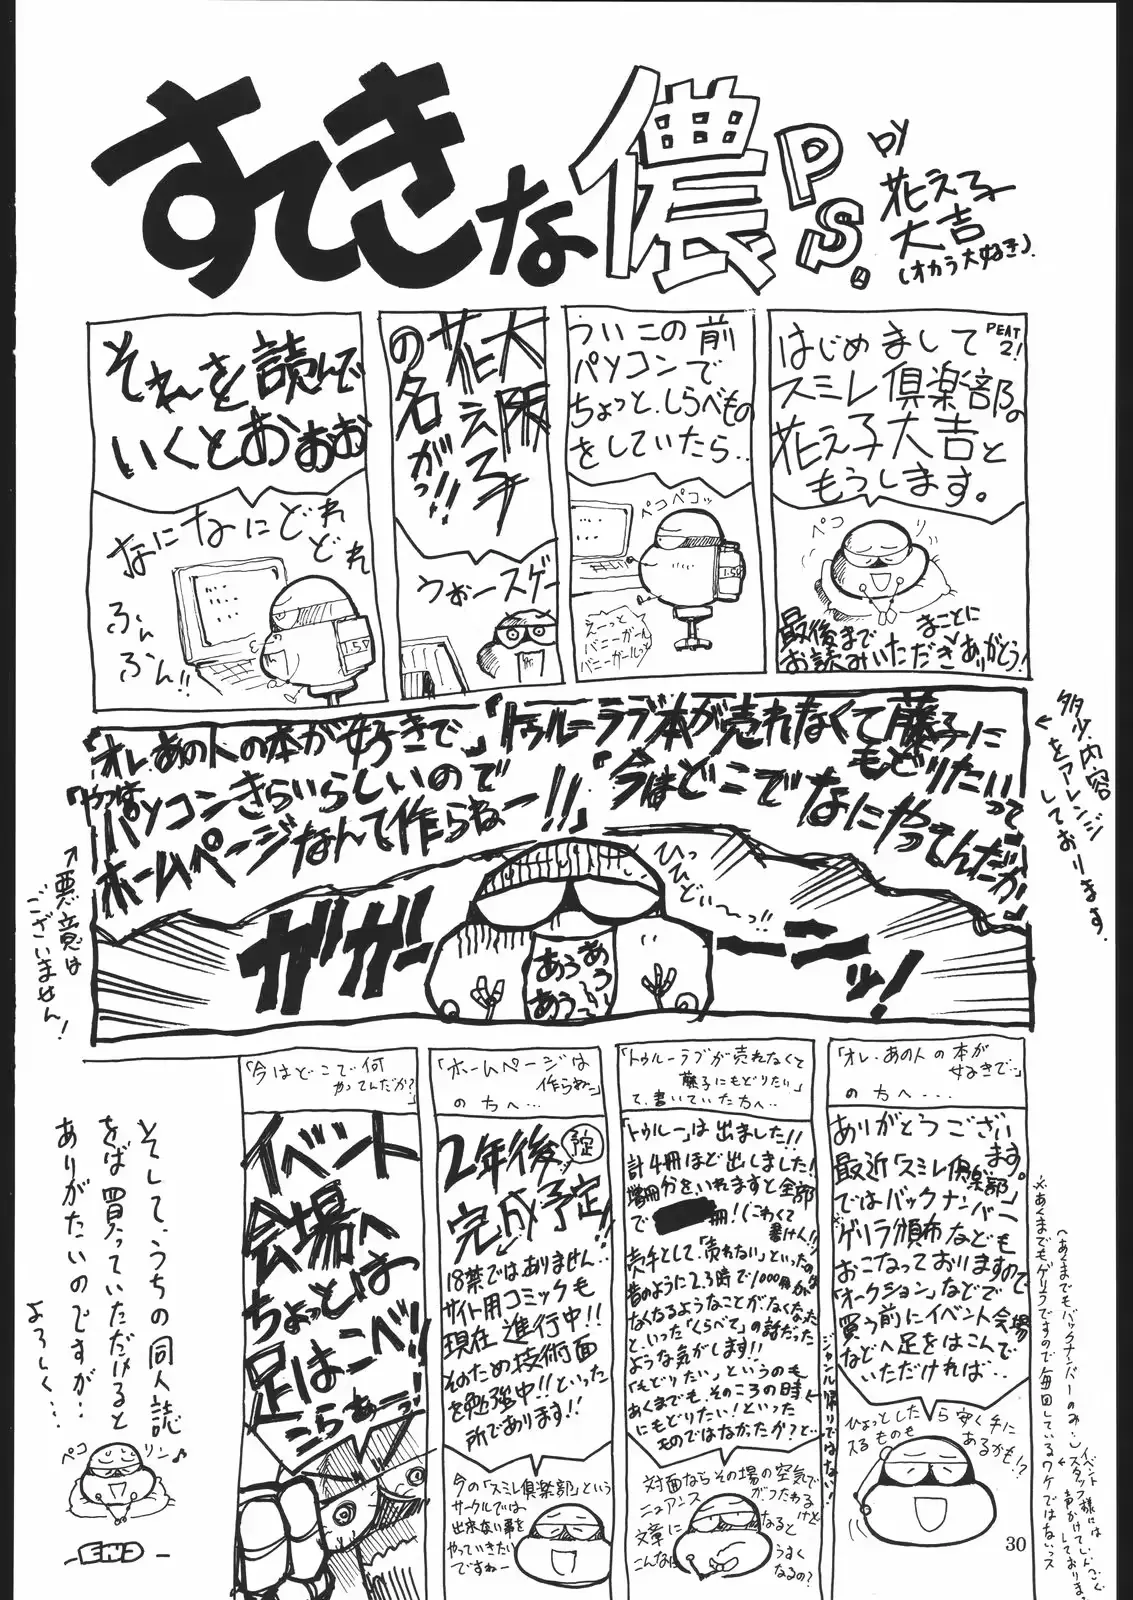 すてきな儂
P.S.
BY
花え子
大吉
(オカラ大好き).
PEAT
2!
はじめまして
スミレ倶楽部の
花え子大吉と
もうします。
ペコ
リ
まことに
最後まで
お読みいただきありがとう!
ういこの前
パソコンで
ちょっと、しらべもの
をしていたら..
ペコペコッ
1.5V
えーっと
バニーガール
バニーガールっと
大阪
花え子
の名がっ!!
うぉースゲー
それを読んで
いくとおぉぉ
なになにどれどれ
ふんふん!!
1.5V
「トゥルーラブ本が売れなくて藤子に
もどりたいって
「今はどこでなにやってんだか」
「オレ.あの人の本が好きで」
「やつは
パソコンきらいらしいので
ホームページなんて作らねー!!」
←多少、内容
をアレンジ
しております.
↑悪意は
ございません!
ひっ
ひどい〜っ!!
ガガーーーンッ!
あうあうあうあう〜
「オレ.あの人の本が
好きで…」
の方へ...
ありがとうござい
ます。
最近「スミレ倶楽部」
ではバックナンバー
ゲリラ頒布なども
おこなっておりますので
「オークション」などで
買う前にイベント会場
などへ足をはこんで
いただければ..
ひょっとしたら安く手に
入るものも
あるかも!?
※あくまでもゲリラですので毎回しているワケではないっス
(あくまでもバックナンバーのみ..)
「トゥルーラブが売れなくて
藤子にもどりたい」
て、書いていた方へ...
「トゥルー」は出ました!!
計4冊ほど出しました!
増冊分をいれますと全部
で
冊!(こわくて
書けん!!)
売手として、「売れない」といったのは
昔のように2.3時で1000冊が
なくなるようなことがなくなった
といった「くらべて」の話だった
ような気がします!!
「もどりたい」というのも
あくまでも、そのころの時
にもどりたい!といった
ものではなかったか?と..
←ジャンル帰りではない!
対面ならその場の空気で
ニュアンス
がつたわる
けど
文章に
なると
こんなに
うまく
なるの?
「ホームページは
作らねー」
の方へ...
2年後
予定
完成予定!!
18禁ではありません...
サイト用コミックも
現在進行中!!
そのため技術面
を勉強中!!といった
所であります!!
今の「スミレ倶楽部」という
サークルでは
出来ない事を
やっていきたい
ですねー
「今はどこで何
やってんだか?」
イベント
会場へ
ちょっとは
足はこべ!!
こらぁーっ!
そして、うちの同人誌
をば買っていただけると
ありがたいのですが…
よろしく…
ペコ
リン♪
-END-
30